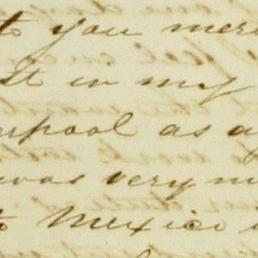 to you mer
st in my
rpool as a
was very m
to Mexico i